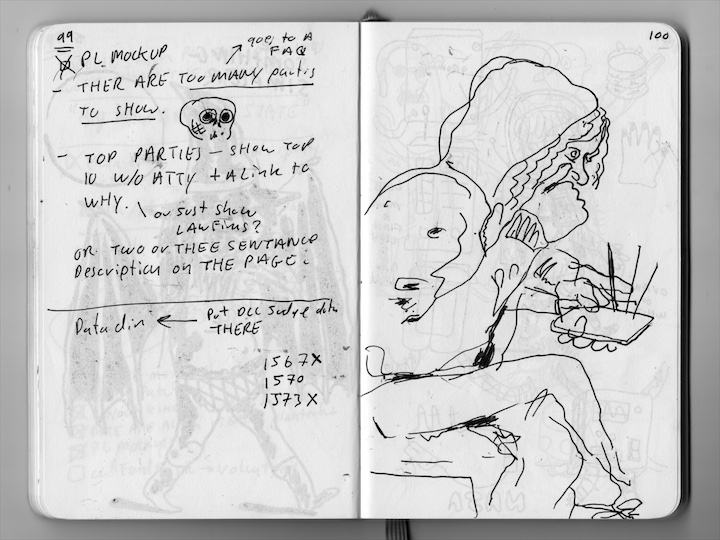 99
PL MOCKUP
goes to a
FAQ
- THER ARE TOO MANY parties
TO SHOW.
- TOP PARTIES - SHOW TOP
10 W/O ATTY + A LINK TO
WHY.
\ or Just Show
LAWFIRMS?
OR TWO OR THEE SENTANCE
Description on THE PAGE.
Put DCL data
THERE
1567X
1570
1573X
100